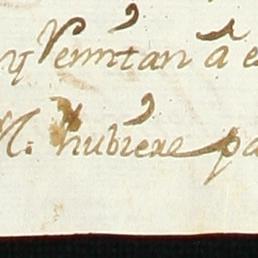 y Venìtan â e
M. hubiere pa